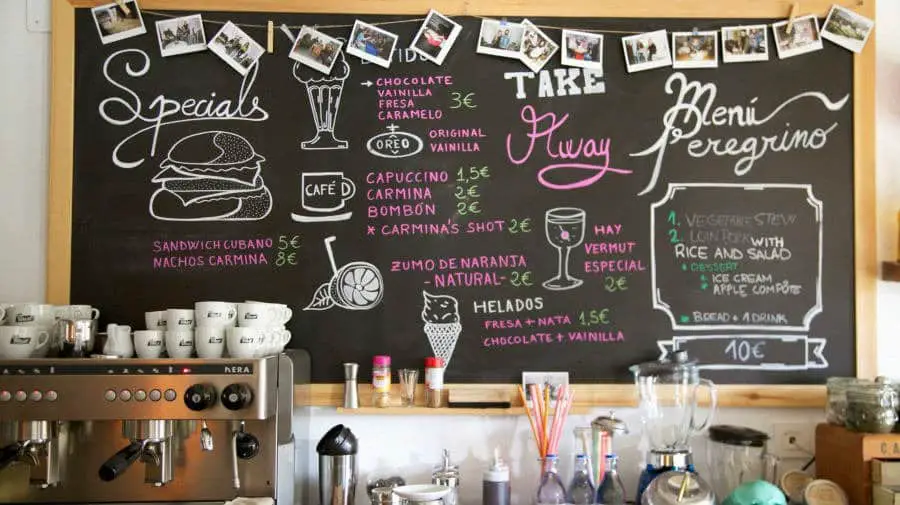 Specials
SANDWICH CUBANO 5€
NACHOS CARMINA 8€
→CHOCOLATE
VAINILLA
FRESA
CARAMELO
3€
OREO
ORIGINAL
VAINILLA
CAFÉ
CAPUCCINO 1,5€
CARMINA 2€
BOMBÓN 2€
* CARMINA'S SHOT 2€
ZUMO DE NARANJA
-NATURAL- 2€
HELADOS
FRESA + NATA 1,5€
CHOCOLATE + VAINILLA
TAKE
Away
HAY
VERMUT
ESPECIAL
2€
Menú
Peregrino
1. VEGETABLE STEW
2. LOIN PORK WITH
RICE AND SALAD
* DESSERT
* ICE CREAM
* APPLE COMPÔTE
* BREAD + 1 DRINK
10€
HERA